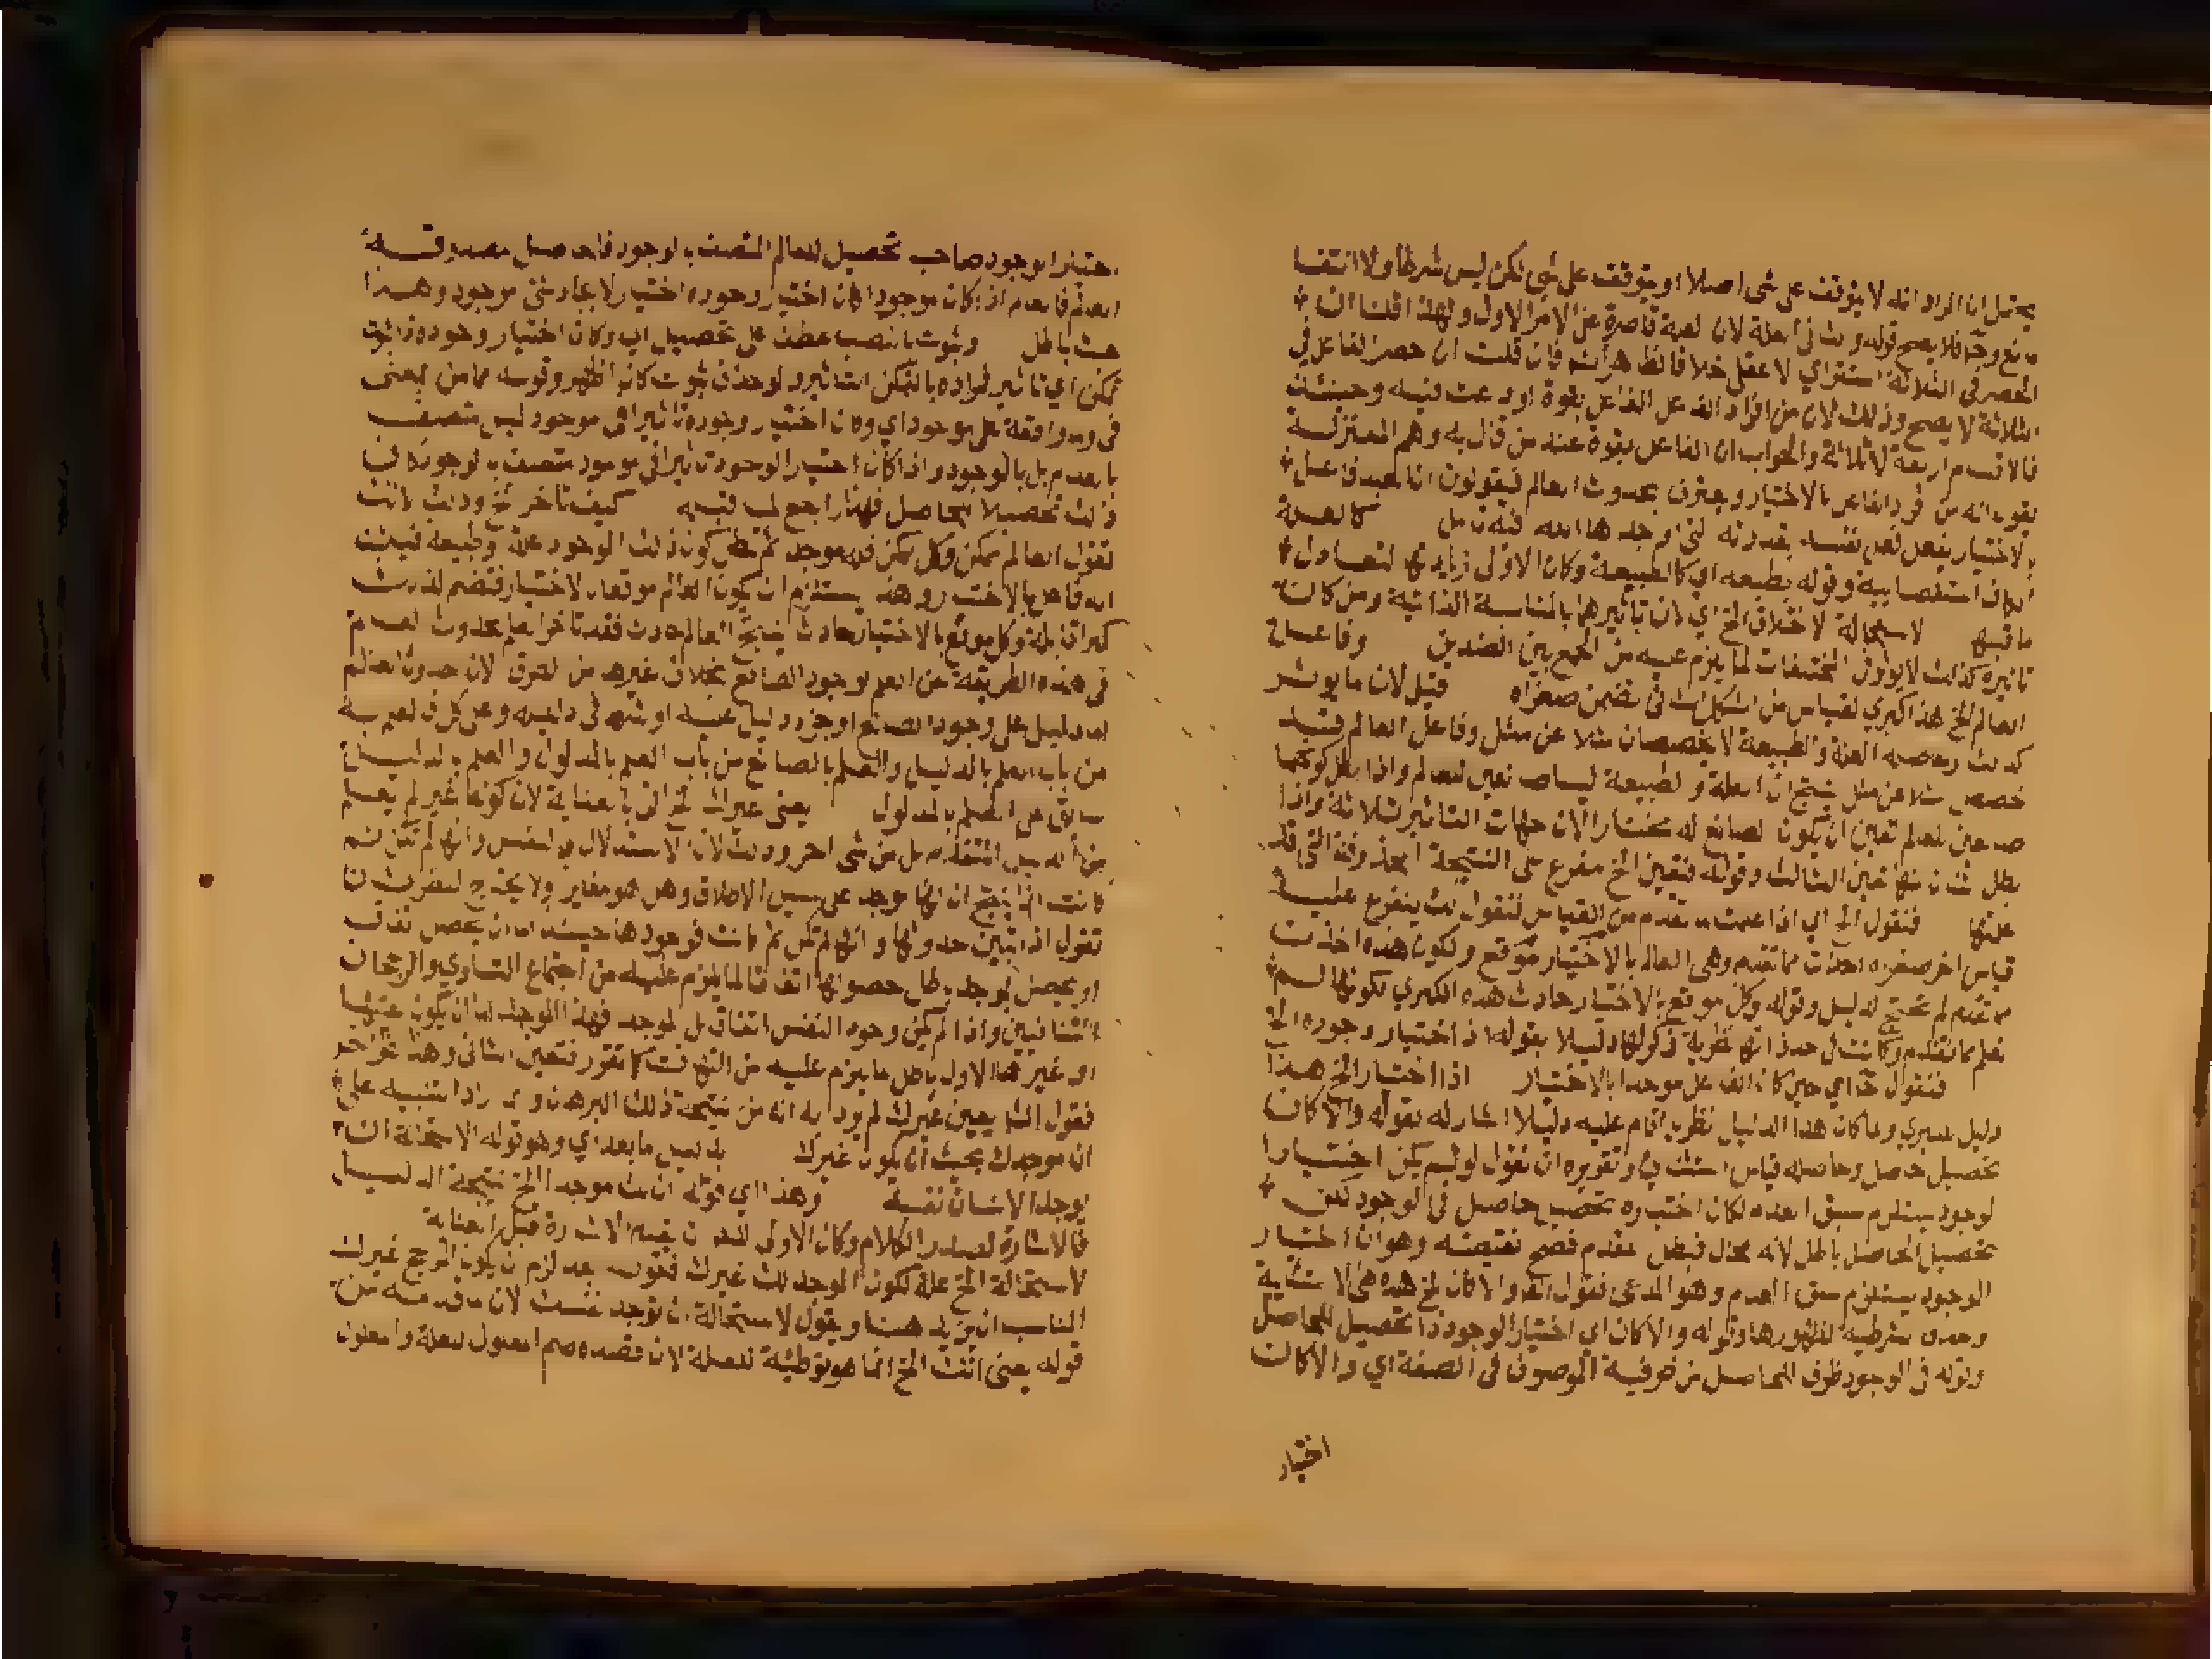 يحتمل ان المراد انه لا يتوقف على شى اصلا او يتوقف على شى لكن ليس شرطا ولا انتفا
مانع وح فلا يصح قوله وذلك في العلة لان العلة قاصرة عن الامر الاول ولهذا قلنا ان
الحصر في الثلاثة استقراي لا عقلي خلافا لظاهر فان قلت ان حصر الفاعل في
الثلاثة لا يصح وذلك لان من افراد الفاعل الفاعل بقوة اودعت فيه وحينئذ
فالاقسام اربعة لا ثلاثة والجواب ان الفاعل بقوة عند من قال به وهم المعتزلة
يقولون انه من الفاعل بالاختيار ويعترف بحدوث العالم فيقولون ان العبد فاعل
بالاختيار يفعل فعل نفسه بقدرته التي اوجدها الله فيه تامل كالعلة
الكاف استقصاييه وقوله بطبعه اي كالطبيعة وكان الاولى زيادتها لتعادل
ما قبلها لاستحالة لاختلاف الخ اي لان تاثيرها بالمناسبة الذاتية ومن كان
تاثيره كذلك لا يوثر في المختلفات لما يلزم عليه من الجمع بين الضدين وفاعل
العالم الخ هذا كبرى لقياس من الشكل الثاني تضمن صغراه قبل لان ما يوثر
كذلك وحاصله العلة والطبيعة لا يخصصان مثلا عن مثل وفاعل العالم قد
خصص مثلا عن مثل ينتج ان العلة والطبيعة ليسا فاعلين للعالم واذا بطل كونهما
فاعلين للعالم تعين ان يكون الصانع له مختارا لان جهات التاثير ثلاثة واذا
بطل ثنتان منها تعين الثالث وقوله فتعين الخ مفرع على النتيجة المحذوفة التي قد
علمتها فنقول الخ اي اذا علمت ما تقدم من القياس فنقول لك يتفرع عليه
قياس اخر صغراه اخذت مما تقدم وهي العالم بالاختيار موقع ولكون هذه اخذت
مما تقدم لم تحتج لدليل وقوله وكل موقع بالاختيار حادث هذه الكبرى لكونها لم
تعلم مما تقدم وكانت في حد ذاتها نظرية ذكر لها دليلا بقوله اذ اختيار وجوده الخ
فنقول ح اي حين كان الفاعل موجدا بالاختيار اذ اختيار الخ هذا
دليل الكبرى ولما كان هذا الدليل نظريا اقام عليه دليلا اشار له بقوله والا كان
تحصيل حاصل وحاصله قياس استثنائي وتقريره ان نقول لو لم يكن اختيار
الوجود يستلزم سبق العدم لكان اختياره تحصيل حاصل في الوجود لكن
تحصيل الحاصل باطل لانه محال فبطل المقدم فصح نقيضه وهو ان اختيار
الوجود يستلزم سبق العدم وهو المدعى فقول الم والا كان الخ هذه هي الاستثنائية
وحذف شرطيه لظهورها وقوله والا كان اي اختيار الوجود ذا تحصيل للحاصل
وقوله في الوجود ظرف للحاصل من ظرفية الموصوف في الصفة اي والا كان
اختيار
اختيار الوجود صاحب تحصيل للعالم المتصف بالوجود فالحاصل مصدوقه
العالم فالعالم اذا كان موجودا كان اختيار وجوده اختيارا لايجاد شى موجود وهذا
عبث باطل وثبوت بالنصب عطف على تحصيل اي وكان اختيار وجوده ذا ثبوت
تمكن اي تاثير فمراده بالتمكن التاثير ولو حذف ثبوت كان اظهر وقوله مما من بمعنى
في وما واقعة على موجود اي وكان اختيار وجوده تاثيرا في موجود ليس متصف
بالعدم بل بالوجود واذا كان اختيار الوجود تاثيرا في موجود متصف بالوجود كان
ذلك تحصيلا للحاصل فهذا راجع لما قبله كيف تاخر الخ وذلك لانك
تقول العالم ممكن وكل ممكن فله موجد ثم تبطل كون ذلك الوجود علة وطبيعة فيثبت
انه فاعل بالاختيار وهذا يستلزم ان يكون العالم موقعا بالاختيار فتضم لذلك
كبرى قائلة وكل موقع بالاختيار حادث ينتج العالم حادث فقد تاخر العلم بحدوث العالم
في هذه الطريقة عن العلم لوجود الصانع بخلاف غيرها من الطرق لان حدوث العالم
اما دليل على وجود الصانع او جزء دليل عليه او شرط في دليله وعلى كل فالعلم به
من باب العلم بالدليل والعلم بالصانع من باب العلم بالمدلول والعلم بالدليل
سابق على العلم بالمدلول يعني غيرك الخ اتى بالعناية لان كونها غير لم يعلم
من الدليل المتقدم بل من شى اخر وذلك لان الاستدلال بالنفس وانها لم تكن ثم
كانت انما ينتج ان لها موجد على سبيل الاطلاق وهل هو مغاير ولا يحتاج لنظر ثان
تقول اذا تبين حدوثها وانها لم تكن ثم كانت فوجودها حينئذ اما ان يحصل اتفاقا
او يحصل بموجد باطل حصولها اتفاقا لما يلزم عليه من اجتماع التساوي والرجحان
المتنافيين واذا لم يكن وجود النفس اتفاقا بل لموجد فهذا الموجد اما ان يكون عينها
او غيرها الاول باطل لما يلزم عليه من التهافت كما تقرر فتعين الثاني وهذا غير احد
فقول الم يعني غيرك لم يرد به انه من نتيجة ذلك البرهان وانما اراد التنبيه على
ان موجدك يجب ان يكون غيرك بدليل ما بعد اي وهو قوله لاستحالة ان
يوجد الانسان نفسه وهذا اي قوله ان لك موجدا الخ نتيجة الدليل
فالاشارة لصدر الكلام وكان الاولى للم ان يقدم الاشارة قبل العناية
لاستحالة الخ علة لكون الموجد لك غيرك فقوله بعد لزم ان يكون المرجح غيرك
المناسب ان يزيد هنا ويقول لاستحالة ان توجد نفسك لان ما قدمه من
قوله يعني انك الخ انما هو توطئة للعلة لان قصده ضم المعلول للعلة والمعلول